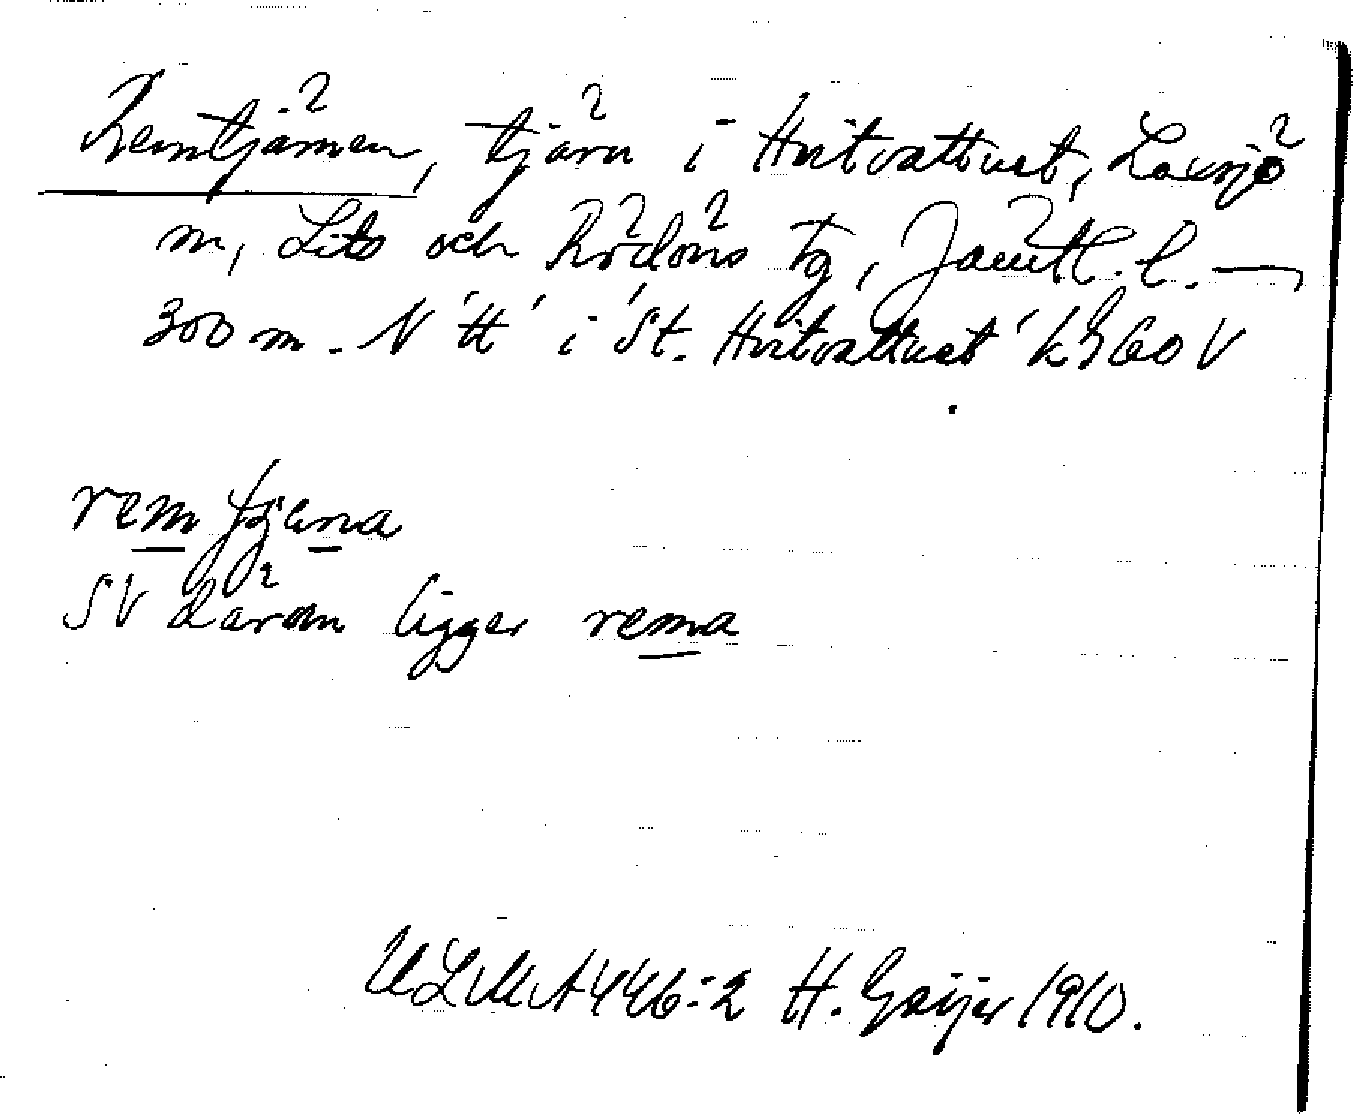 Remtjärnen, tjärn i Hvitvattnet, Laxsjö
sn, Lits och Rödöns tg, Jämtl. l. —
300 m. N 'tt' i 'St. Hvitvattnet' k 960 V
rem tjæna
SV därom ligger rema
ULMA 446:2 H. Geijer 1910.